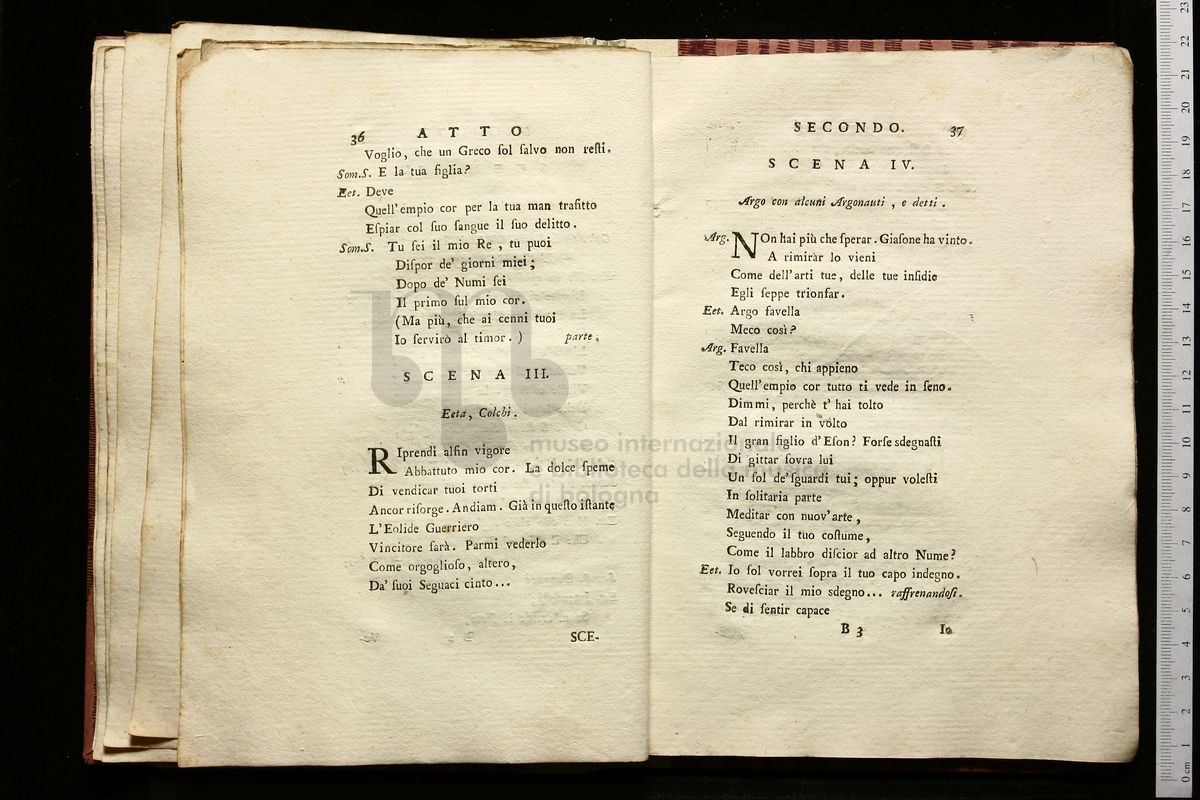 36 ATTO
Voglio, che un Greco ſol ſalvo non reſti.
Som.S. E la tua figlia?
Eet. Deve
Quell'empio cor per la tua man trafitto
Eſpiar col ſuo ſangue il ſuo delitto.
Som.S. Tu ſei il mio Re, tu puoi
Diſpor de' giorni miei;
Dopo de' Numi ſei
Il primo ſul mio cor.
(Ma più, che ai cenni tuoi
Io ſervirò al timor.) parte.
SCENA III.
Eeta, Colchi.
RIprendi alfin vigore
Abbattuto mio cor. La dolce ſpeme
Di vendicar tuoi torti
Ancor riſorge. Andiam. Già in queſto iſtante
L'Eolide Guerriero
Vincitore ſarà. Parmi vederlo
Come orgoglioſo, altero,
Da' ſuoi Seguaci cinto...
SCE-
SECONDO. 37
SCENA IV.
Argo con alcuni Argonauti, e detti.
Arg. NOn hai più che ſperar. Giaſone ha vinto.
A rimirar lo vieni
Come dell'arti tue, delle tue inſidie
Egli ſeppe trionfar.
Eet. Argo favella
Meco così?
Arg. Favella
Teco così, chi appieno
Quell'empio cor tutto ti vede in ſeno.
Dimmi, perchè t' hai tolto
Dal rimirar in volto
Il gran figlio d'Eſon? Forſe sdegnaſti
Di gittar ſovra lui
Un ſol de'ſguardi tui; oppur voleſti
In ſolitaria parte
Meditar con nuov'arte,
Seguendo il tuo coſtume,
Come il labbro diſcior ad altro Nume?
Eet. Io ſol vorrei ſopra il tuo capo indegno.
Roveſciar il mio sdegno... raffrenandoſi.
Se di ſentir capace
B 3 Io
museo internazionale
biblioteca della musica
di bologna
0 cm 1 2 3 4 5 6 7 8 9 10 11 12 13 14 15 16 17 18 19 20 21 22 23